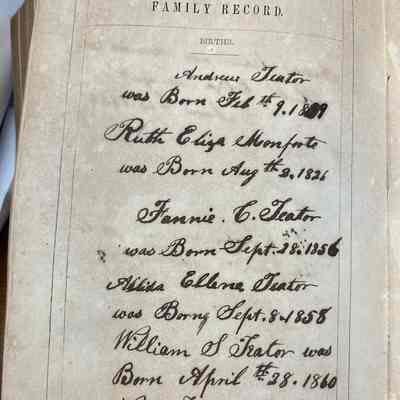 FAMILY RECORD.
BIRTHS.
Andrew Teator
was Born Feb th 9. 18
Ruth Eliza Monforte
was Born Aug th 2. 1826
Fannie. C. Teator
was Born Sept. 28. 1856
Ellena Teator
was Born Sept. 8. 1858
William S Teator was
Born April th 28. 1860